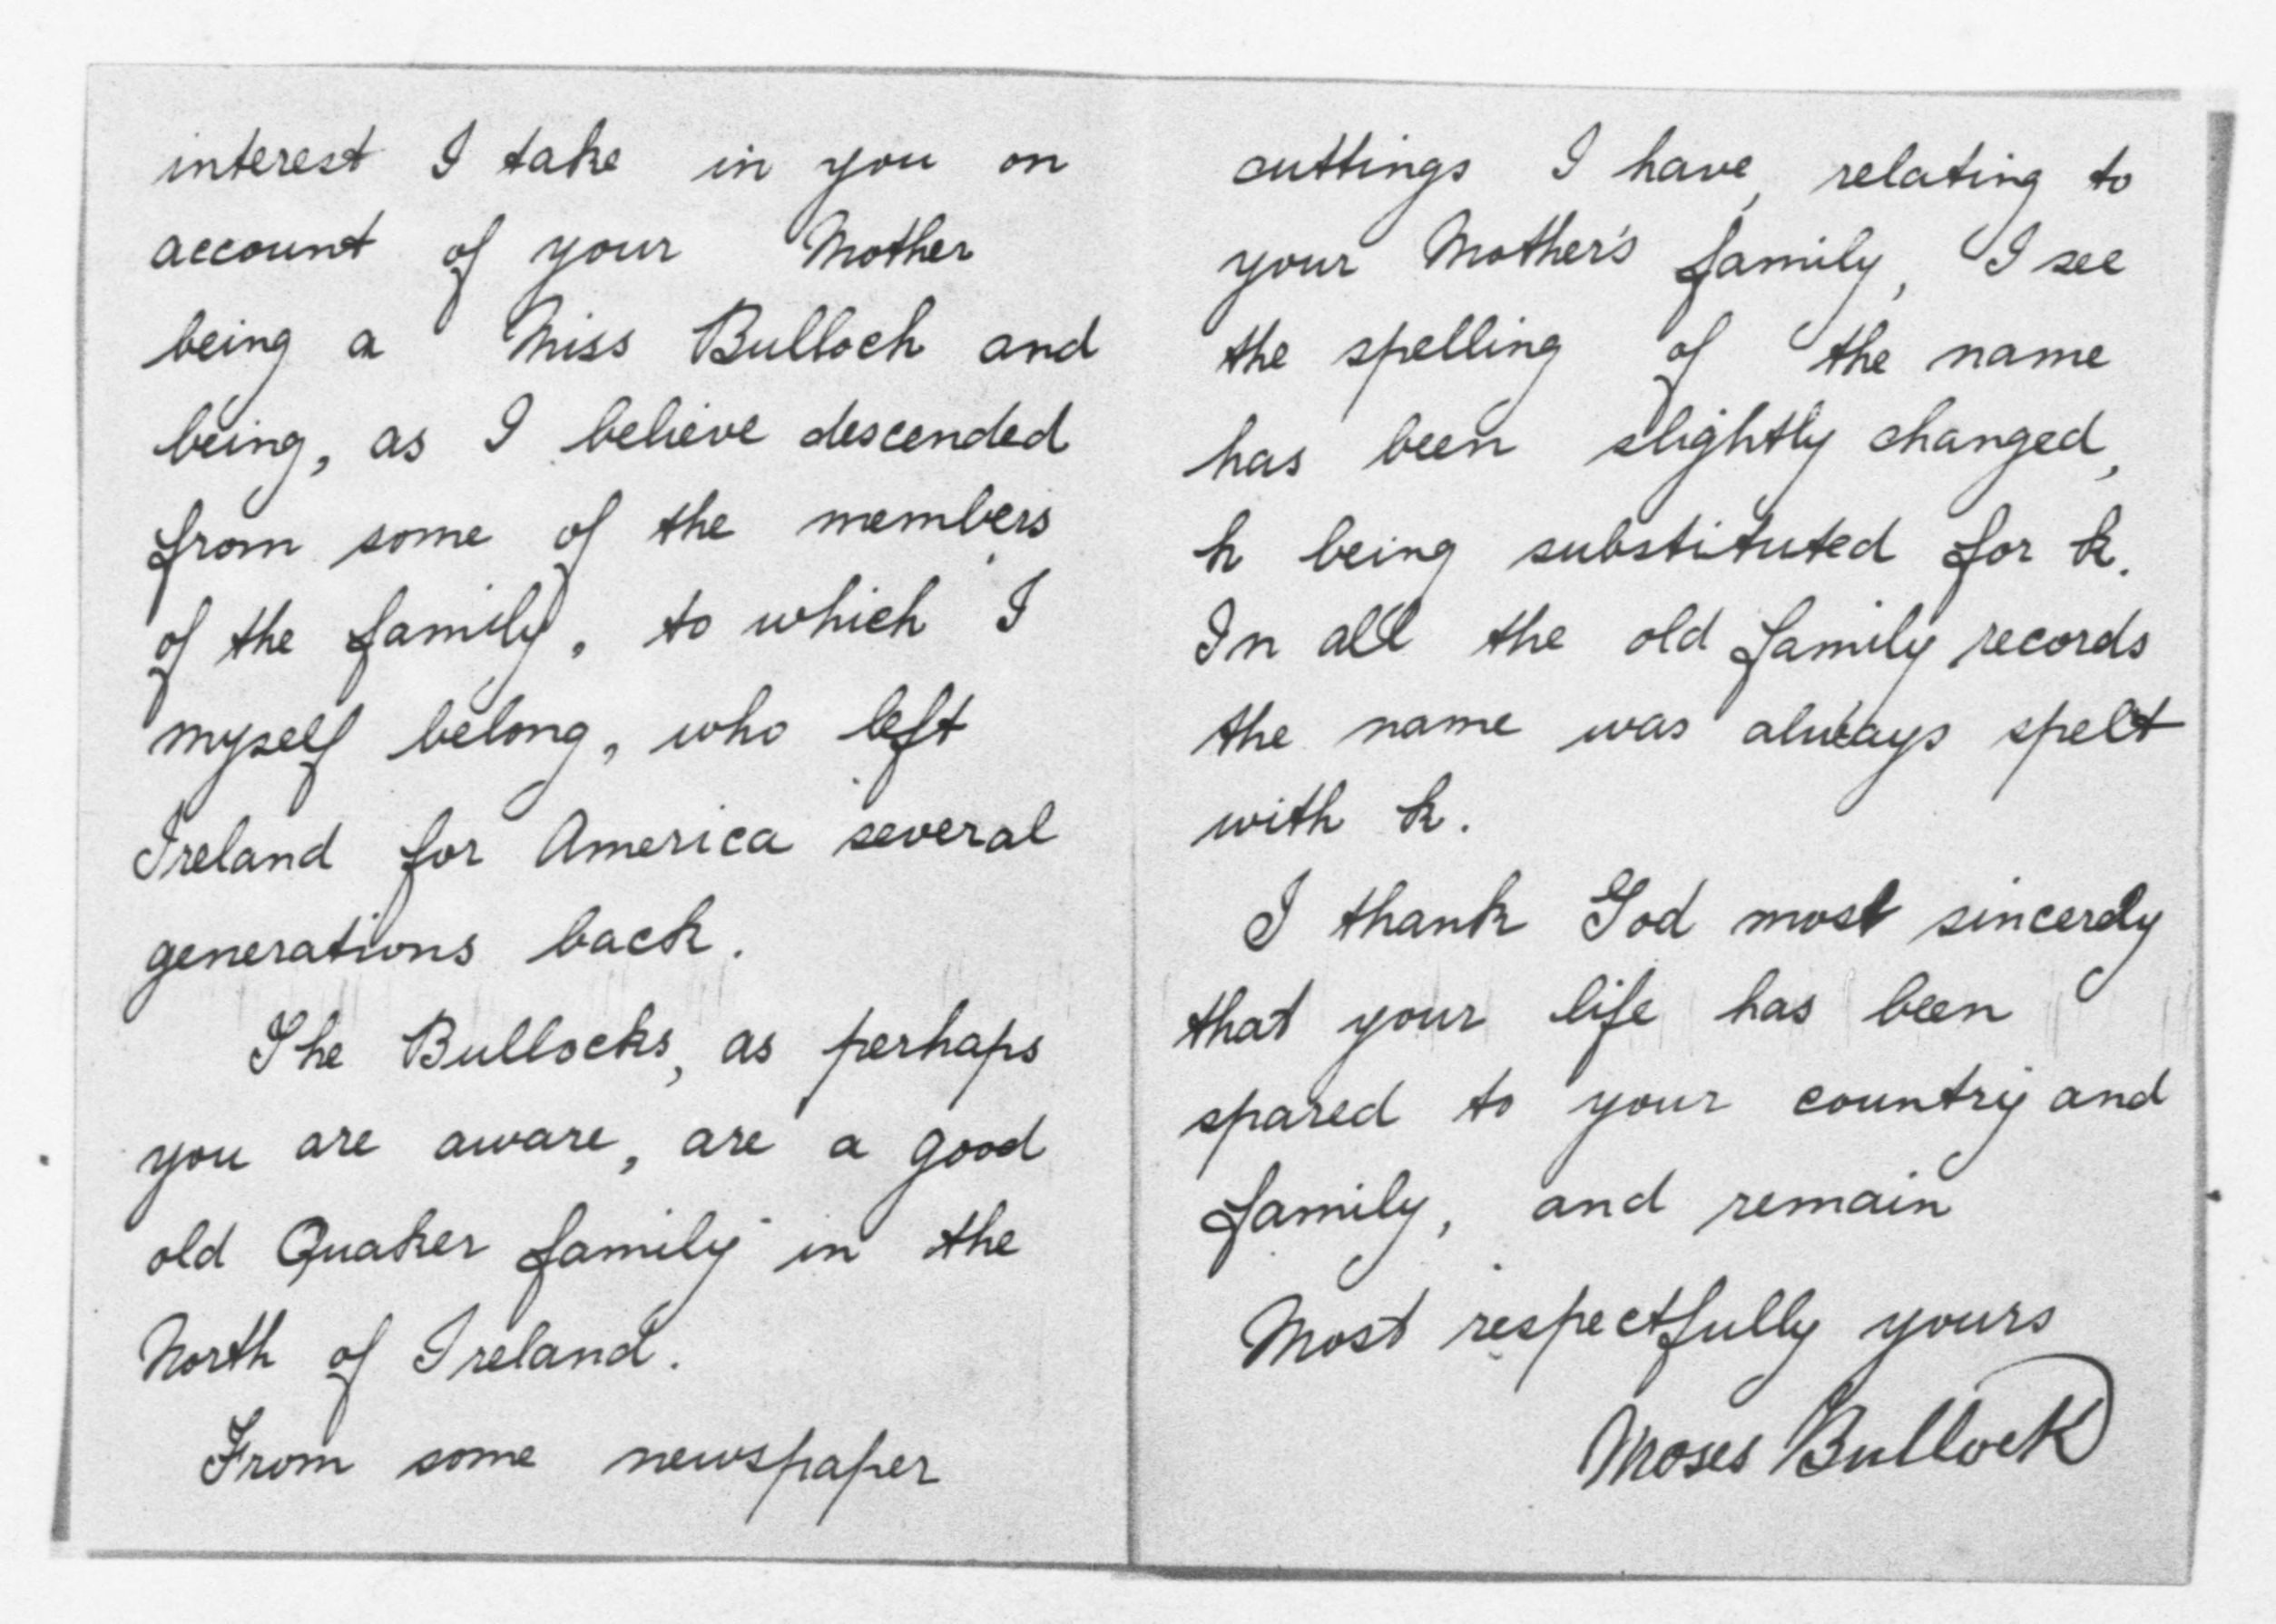 interest I take in you on
account of your Mother
being a Miss Bulloch and
being, as I believe descended
from some of the members
of the family, to which I
myself belong, who left
Ireland for America several
generations back.
The Bullocks, as perhaps
you are aware, are a good
old Quaker family in the
North of Ireland.
From some newspaper
cuttings I have, relating to
your Mother's family, I see
the spelling of the name
has been slightly changed,
h being substituted for k.
In all the old family records
the name was always spelt
with k.
I thank God most sincerely
that your life has been
spared to your country and
family, and remain
Most respectfully yours
Moses Bullock